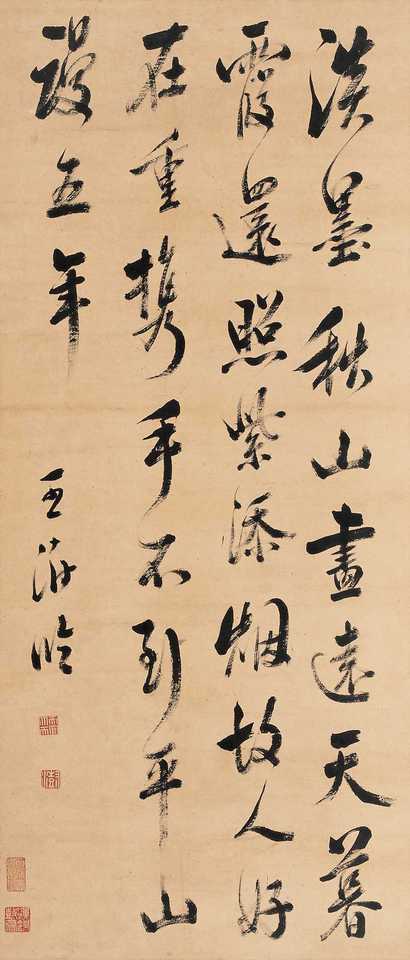 淡墨秋山畫遠天暮
霞還照紫添烟故人好
在重携手不到平山
謾五年
王澍臨